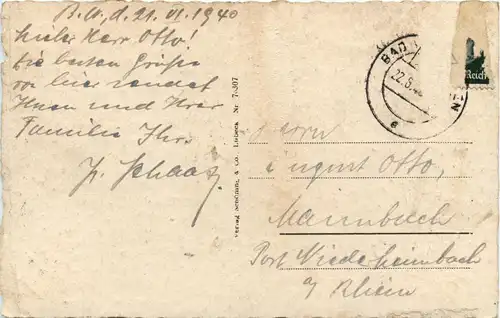 B. W., d. 21. VI. 1940
Lieber Herr Otto!
Die besten Grüße
von hier sendet
Ihnen und Ihrer
Familie Ihr
Verlag Schöning & Co., Lübeck Nr. 7-307
BAD
22.6.4
EN
e
Reich
Herrn
August Otto,
Mannbach
Post Niederheimbach
a/ Rhein